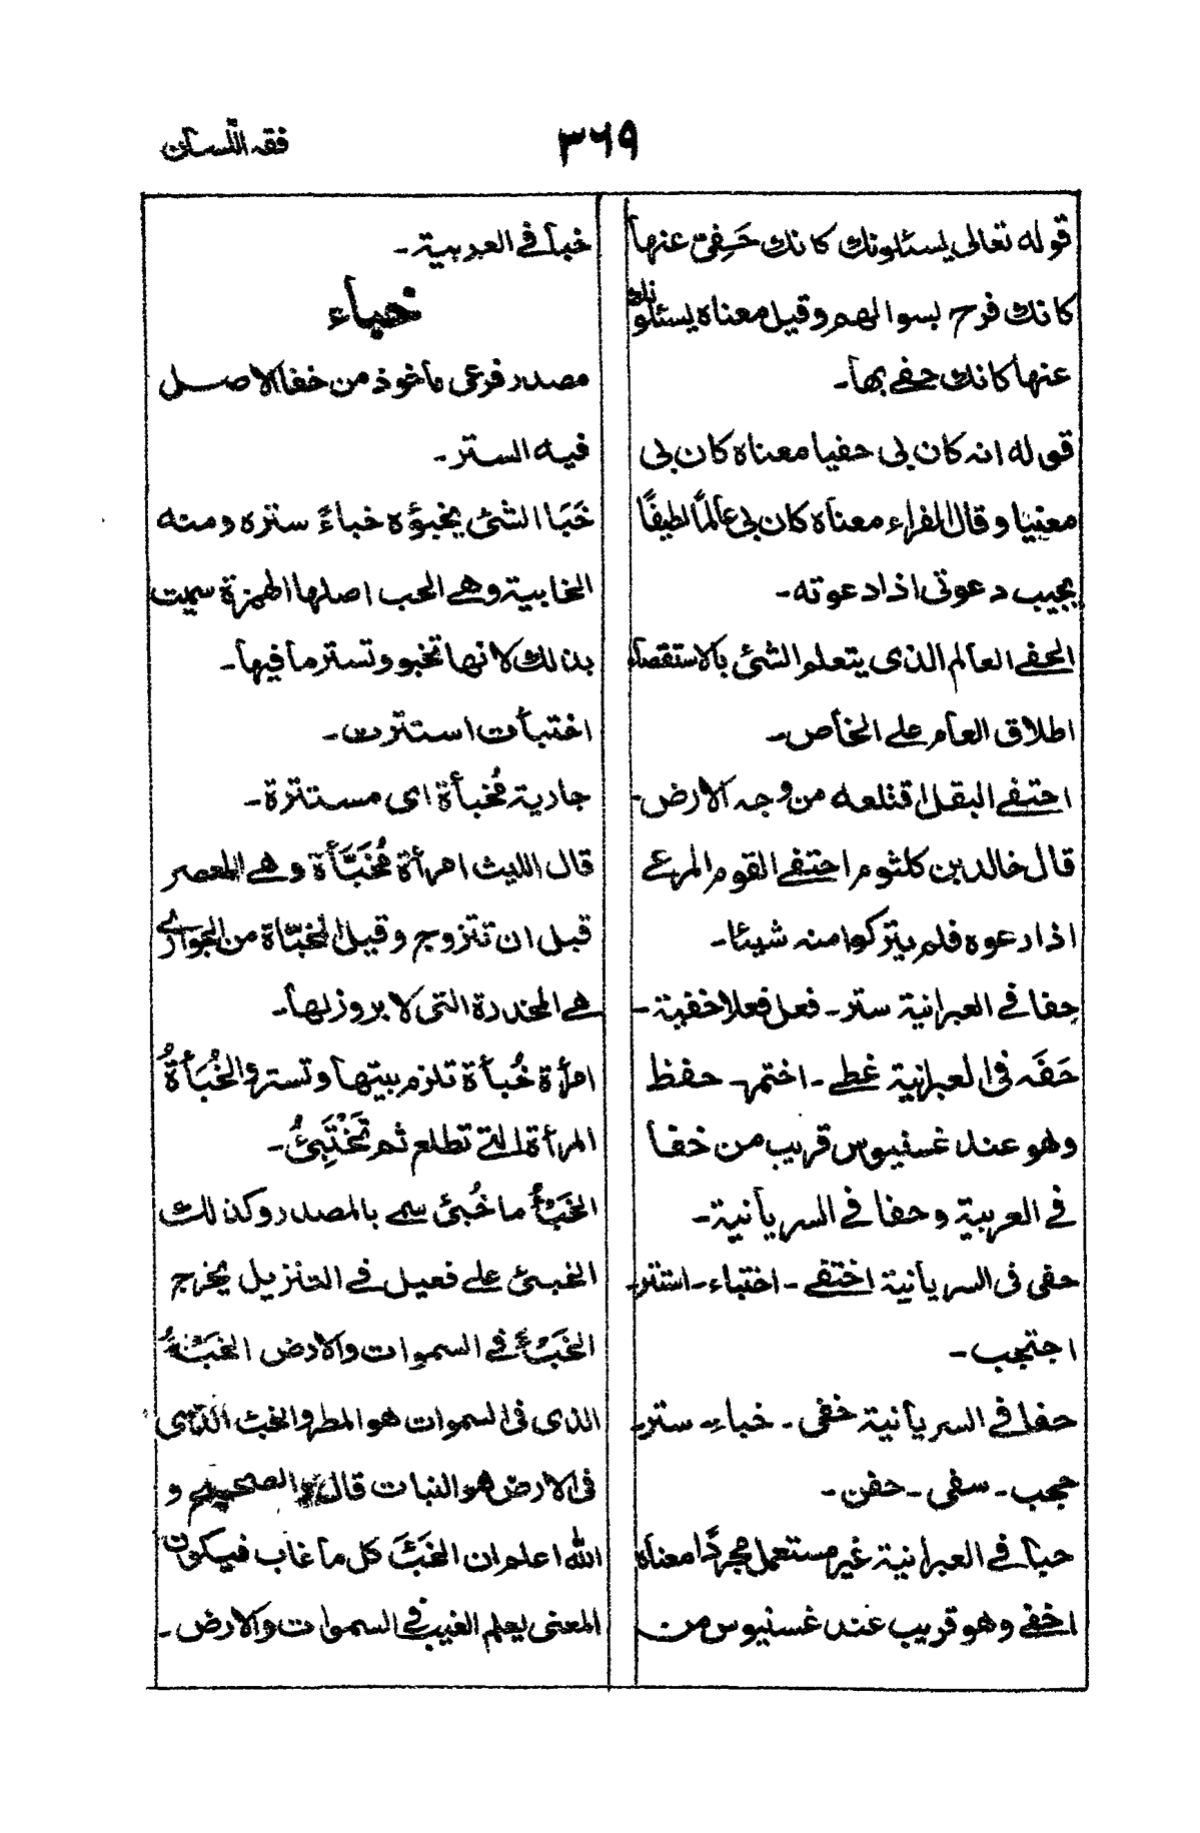 فقه اللّسان
٣٦٩
قوله تعالى يسئلونك كانك حَفِیّ عنها
كانك فرح بسوالهم وقيل معناه يسئلونك
عنها كانك حفے بها۔
قوله انه كان بی حفيا معناه كان بی
معنيا وقال الفراء معناه كان بی عالمًا لطيفًا
يجيب دعوتی اذا دعوته۔
الحفے العالم الذی يتعلم الشئ بالاستقصاء
اطلاق العام علے الخاص۔
احتفے البقل اقتلعه من وجه الارض۔
قال خالد بن كلثوم احتفے القوم المرعے
اذا رعوه فلم يتركوا منه شيئا۔
حِفا فے العبرانية ستر۔ فعل فعلا خفية۔
حَفَه فی العبرانية غطے۔ اختم۔ حفظ
وهو عند غسنيوس قريب من خفا
فے العربية وحفا فے السريانية۔
حفی فی السريانية اختفے۔ اختباء۔ استتر۔
احتجب۔
حفا فے السريانية خفی۔ خباء۔ ستر۔
حجب۔ سفی۔ حفن۔
حبا فے العبرانية غير مستعمل مجردًا معناه
اخفے وهو قريب عند غسنيوس من
خبا فے العربية۔
خباء
مصدر فرعی ماخوذ من خفا الاصل
فيه الستر۔
خَبَا الشئ يخبؤه خباءً ستره ومنه
الخابية وهے الحب اصلها الهمزة سميت
بذلك لانها تخبو وتستر ما فيها۔
اختبأت استترت۔
جارية مُخبأة ای مستترة۔
قال الليث امرأة مُخَبَّأة وهے المعصر
قبل ان تتزوج وقيل المخبّاة من الجواری
هے المخدرة التی لا بروز لها۔
امرأة خُبأة تلزم بيتها وتستر والخُبَأةُ
المرأة التے تطلع ثم تَخْتَبِیُٔ۔
الخَبْأُ ما خُبیٔ سمے بالمصدر وكذلك
الخبیٔ علے فعيل فے التنزيل يخرج
الخَبْءَ فے السموات والارض الخَبْءُ
الذی فی السموات هو المطر والخبث الذی
فی الارض هو النبات قال والصحيح و
الله اعلم ان الخَبْءَ كل ما غاب فيكون
المعنی يعلم الغيب فے السموات والارض۔